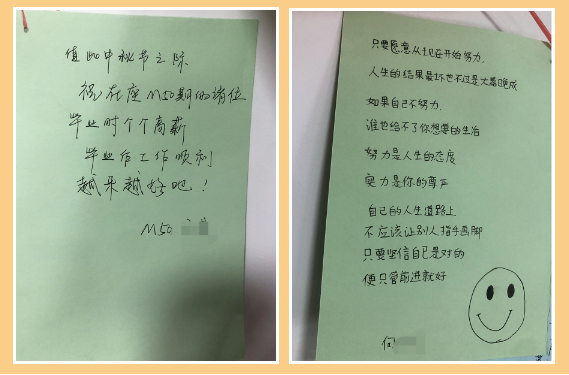 值此中秋节之际
祝在座M50期的诸位
毕业时个个高薪
毕业后工作顺利
越来越好吧!
M50
只要愿意从现在开始努力.
人生的结果最坏也不过是大器晚成
如果自己不努力.
谁也给不了你想要的生活
努力是人生的态度
实力是你的尊严
自己的人生道路上
不应该让别人指手画脚
只要坚信自己是对的
便只管前进就好
何